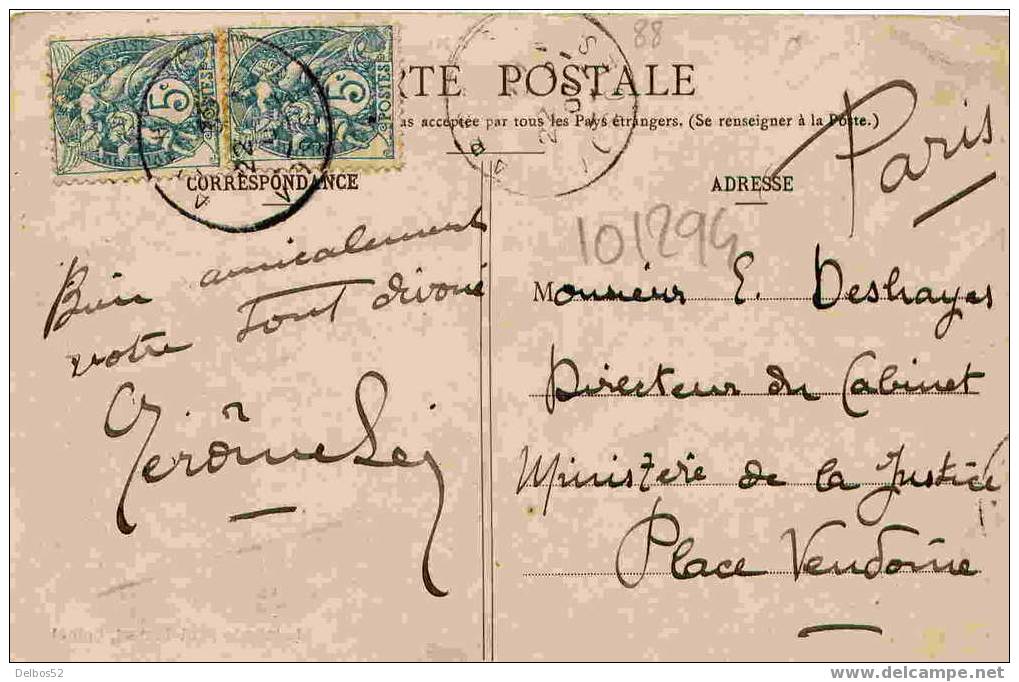 88
RTE POSTALE
as acceptée par tous les Pays étrangers. (Se renseigner à la Poste.)
5c POSTES
5c POSTES
22
CORRESPONDANCE
ADRESSE
Paris
101294
Bien amicalement
votre tout dévoué
Jérôme
Monsieur E. Deshayes
Directeur du Cabinet
Ministère de la Justice
Place Vendôme
Delbos52
www.delcampe.net